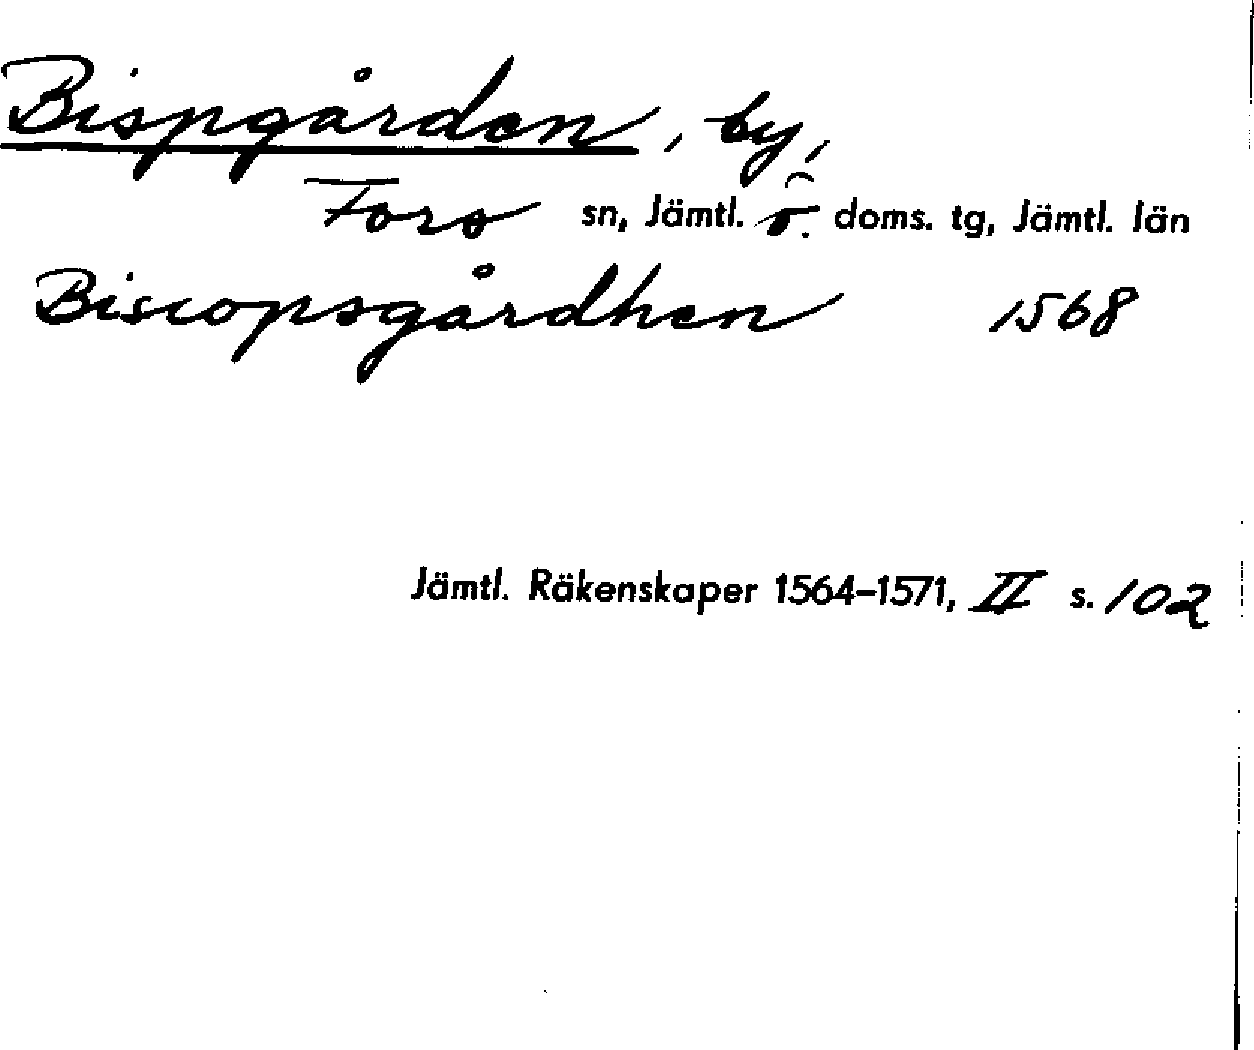 Bispgården, by,
Fors sn, Jämtl. ö. doms. tg, Jämtl. län
Biscopsgårdhen 1568
Jämtl. Räkenskaper 1564–1571, II s. 102